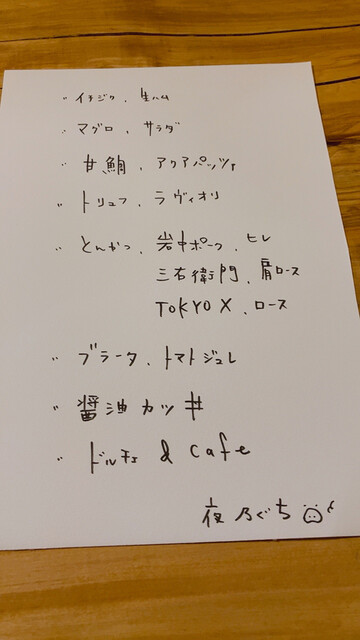 ・イチジク、生ハム
・マグロ、サラダ
・甘鯛、アクアパッツァ
・トリュフ、ラヴィオリ
・とんかつ、岩中ポーク、ヒレ
三右衛門、肩ロース
TOKYO X、ロース
・ブラータ、トマトジュレ
・醤油カツ丼
・ドルチェ & cafe
夜乃ぐち